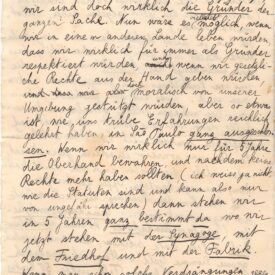 wir sind doch wirklich die Gründer der
ganzen Sache. Nun wäre es möglich wenn
wir in einem anderen Lande leben würden,
dass wir wirklich für immer als Gründer
respektiert würden und wenn wir gesetzli-
che Rechte aus der Hand geben würden
und dass was moralisch von unserer
Umgebung gestützt würden, aber so etwas
ist, wie uns trübe Erfahrungen reichlich
gelehrt haben in São Paulo ganz ausgeschlos-
sen. Wenn wir wirklich nur für 5 Jahre
die Oberhand bewahren und nachdem keine
Rechte mehr haben sollten (ich weiss ja nicht
wie die Statuten sind und kann also nur
von ungefähr sprechen) dann stehen wir
in 5 Jahren ganz bestimmt da wo wir
jetzt stehen mit der Synagoge, mit
dem Friedhof und mit der Fabrik
man solche Verdrängungen